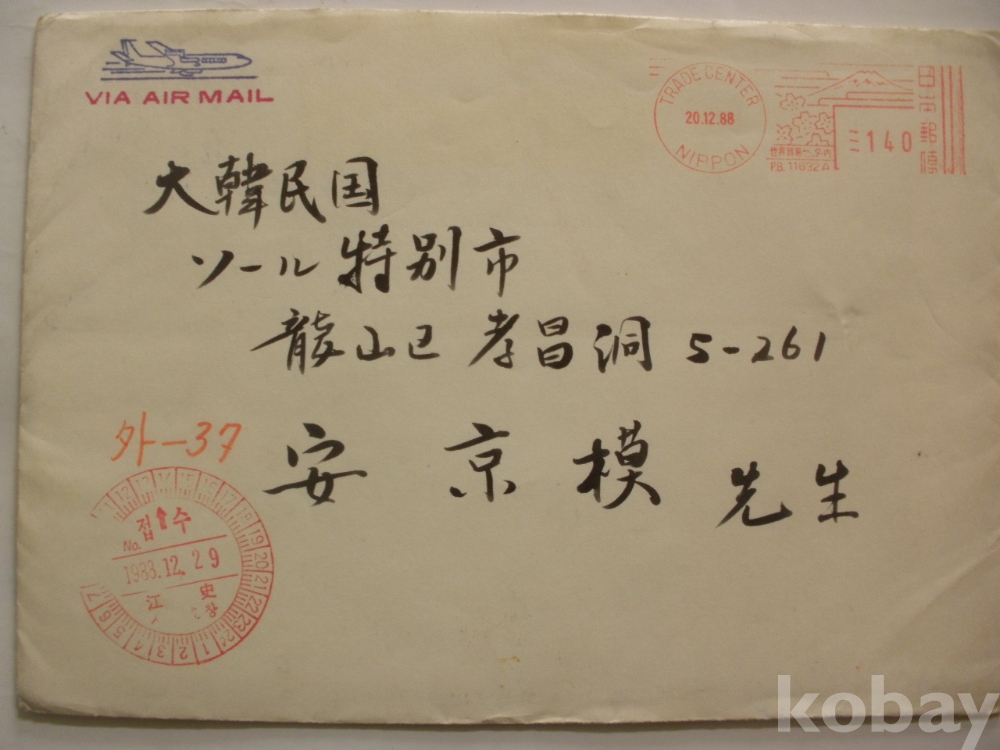 VIA AIR MAIL
TRADE CENTER
20.12.88
NIPPON
140
日本郵便
P.B. 11632A
大韓民国
ソール 特別市
龍山区 孝昌洞 5-261
安 京 模 先生
外-37
접수
No.
1983.12.29
江 史
kobay